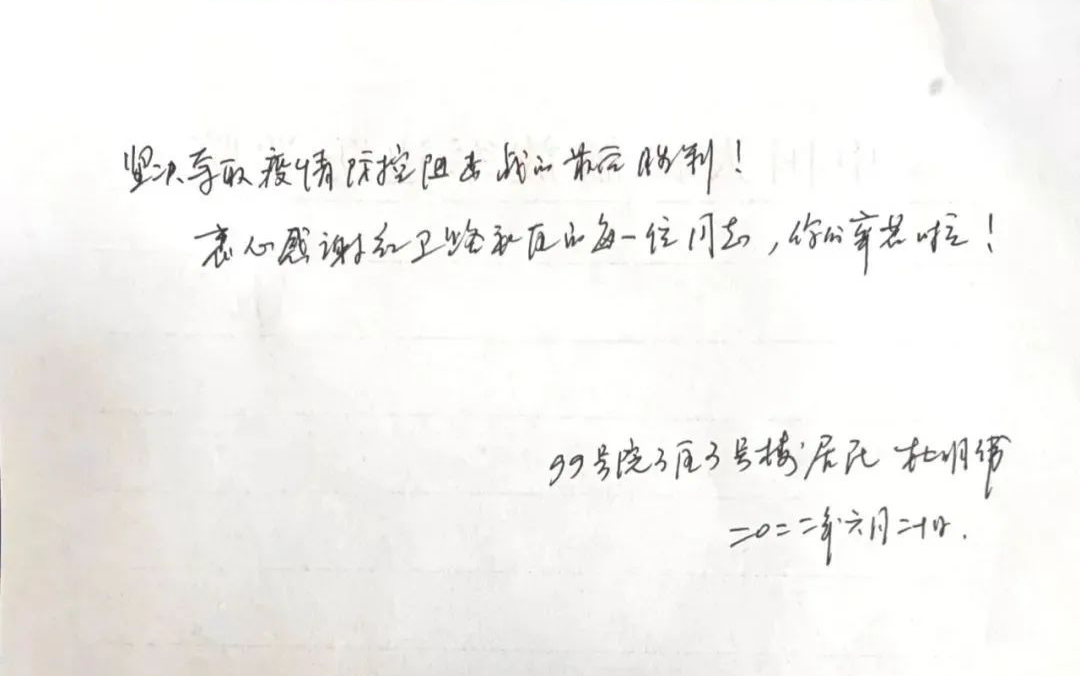 坚决夺取疫情防控阻击战的最后胜利！
衷心感谢红卫路社区的每一位同志，你们辛苦啦！
99号院3区3号楼居民 杜明
二〇二二年六月二十日.